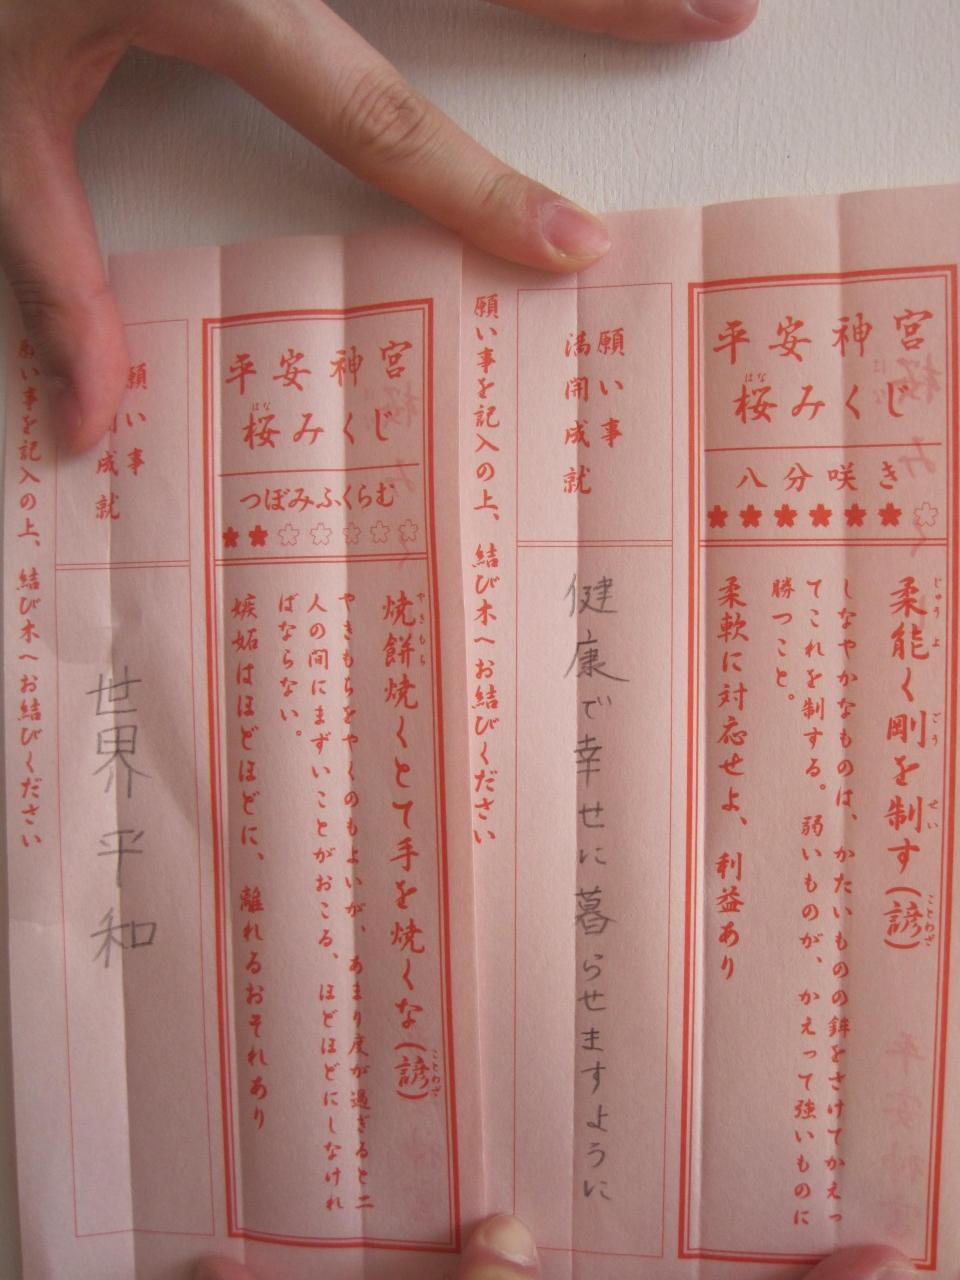 平安神宮
桜みくじ
はな
八分咲き
柔能く剛を制す(諺)
じゅうよ ごう せい ことわざ
しなやかなものは、かたいものの鉾をさけてかえっ
てこれを制する。弱いものが、かえって強いものに
勝つこと。
柔軟に対応せよ、利益あり
願い事
満開成就
健康で幸せに暮らせますように
願い事を記入の上、結び木へお結びください
平安神宮
桜みくじ
はな
つぼみふくらむ
焼餅焼くとて手を焼くな(諺)
やきもち ことわざ
やきもちをやくのもよいが、あまり度が過ぎると二
人の間にまずいことがおこる、ほどほどにしなけれ
ばならない。
嫉妬はほどほどに、離れるおそれあり
願い事
開成就
世界平和
願い事を記入の上、結び木へお結びください